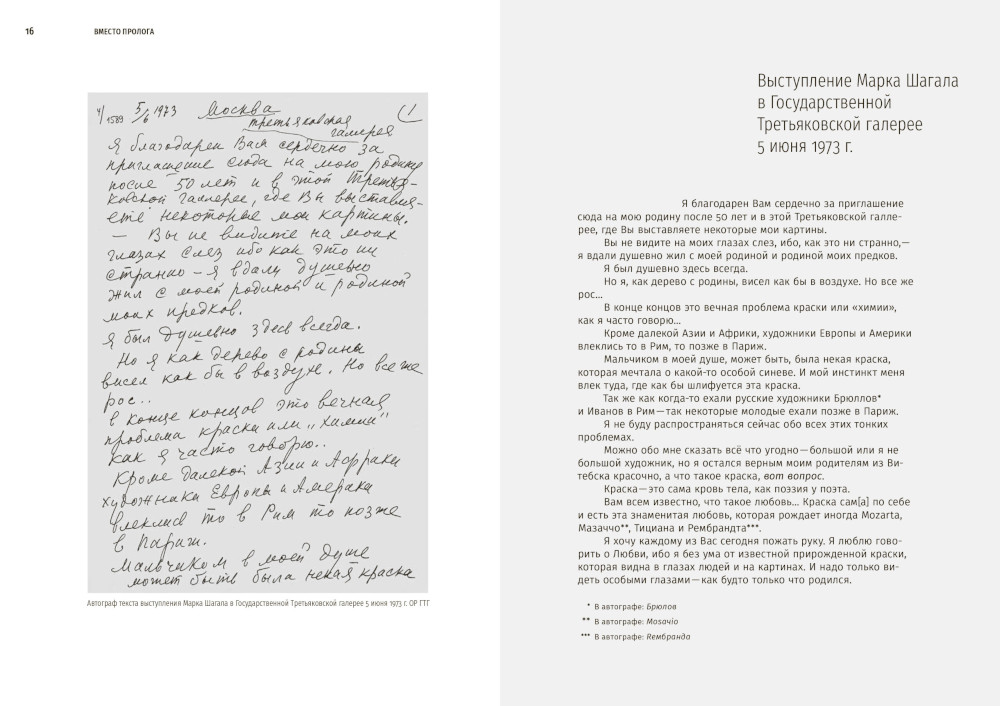 16
ВМЕСТО ПРОЛОГА
4/1589 5/6 1973 Москва 1
Третьяковская
галерея
Я благодарен Вам сердечно за
приглашение сюда на мою родину
после 50 лет и в этой Третья-
ковской галлерее, где Вы выставля-
ете некоторые мои картины.
— Вы не видите на моих
глазах слез ибо как это ни
странно – я вдали душевно
жил с моей родиной и родиной
моих предков.
Я был душевно здесь всегда.
Но я как дерево с родины
висел как бы в воздухе. Но все же
рос..
В конце концов это вечная
проблема краски или „химии"
как я часто говорю..
Кроме далекой Азии и Африки
художники Европы и Америки
влеклись то в Рим то позже
в Париж.
Мальчиком в моей душе
может быть была некая краска
Автограф текста выступления Марка Шагала в Государственной Третьяковской галерее 5 июня 1973 г. ОР ГТГ
Выступление Марка Шагала
в Государственной
Третьяковской галерее
5 июня 1973 г.
Я благодарен Вам сердечно за приглашение
сюда на мою родину после 50 лет и в этой Третьяковской галле-
рее, где Вы выставляете некоторые мои картины.
Вы не видите на моих глазах слез, ибо, как это ни странно,—
я вдали душевно жил с моей родиной и родиной моих предков.
Я был душевно здесь всегда.
Но я, как дерево с родины, висел как бы в воздухе. Но все же
рос...
В конце концов это вечная проблема краски или «химии»,
как я часто говорю...
Кроме далекой Азии и Африки, художники Европы и Америки
влеклись то в Рим, то позже в Париж.
Мальчиком в моей душе, может быть, была некая краска,
которая мечтала о какой-то особой синеве. И мой инстинкт меня
влек туда, где как бы шлифуется эта краска.
Так же как когда-то ехали русские художники Брюллов*
и Иванов в Рим—так некоторые молодые ехали позже в Париж.
Я не буду распространяться сейчас обо всех этих тонких
проблемах.
Можно обо мне сказать всё что угодно—большой или я не
большой художник, но я остался верным моим родителям из Ви-
тебска красочно, а что такое краска, вот вопрос.
Краска—это сама кровь тела, как поэзия у поэта.
Вам всем известно, что такое любовь... Краска сам[а] по себе
и есть эта знаменитая любовь, которая рождает иногда Mozarta,
Мазаччо**, Тициана и Рембрандта***.
Я хочу каждому из Вас сегодня пожать руку. Я люблю гово-
рить о Любви, ибо я без ума от известной прирожденной краски,
которая видна в глазах людей и на картинах. И надо только ви-
деть особыми глазами—как будто только что родился.
* В автографе: Брюлов
** В автографе: Mosaчio
*** В автографе: Rембранда